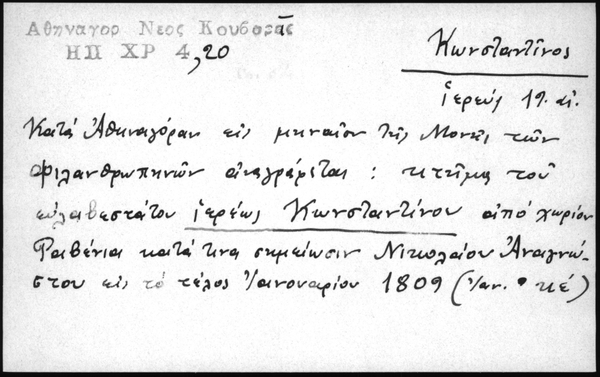 Αθηναγορ Νεος Κουβαρᾶς
ΗΠ ΧΡ 4,20
Κωνσταντῖνος
ἱερεύς 19. αἰ.
Κατά Ἀθηναγόραν εἰς μηναῖον τῆς Μονῆς τῶν
Φιλανθρωπηνῶν ἀναγράφεται : κτῆμα τοῦ
εὐλαβεστάτου ἱερέως Κωνσταντίνου ἀπό χωρίον
Ραβένια κατά τινα σημείωσιν Νικολαίου Ἀναγνώ-
στου εἰς τό τέλος Ἰανουαρίου 1809 (Ἰαν. κέ)